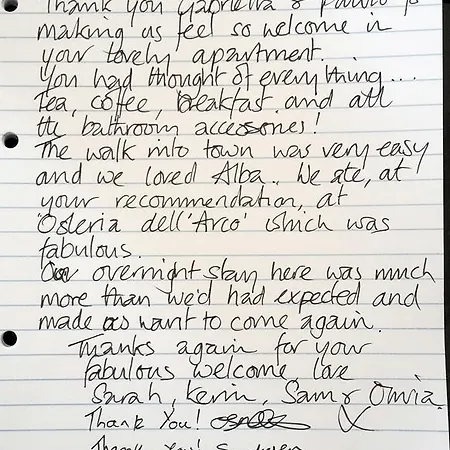 Thank you Gabriella & Paulo for
making us feel so welcome in
your lovely apartment.
You had thought of everything...
Tea, coffee, breakfast and all
the bathroom accessories!
The walk into town was very easy
and we loved Alba.. We ate, at
your recommendation, at
'Osteria dell'Arco' which was
fabulous.
Our overnight stay here was much
more than we'd had expected and
made us want to come again.
Thanks again for your
fabulous welcome, love
Sarah, Kevin, Sam & Olivia.
Thank You! X
Thank You!